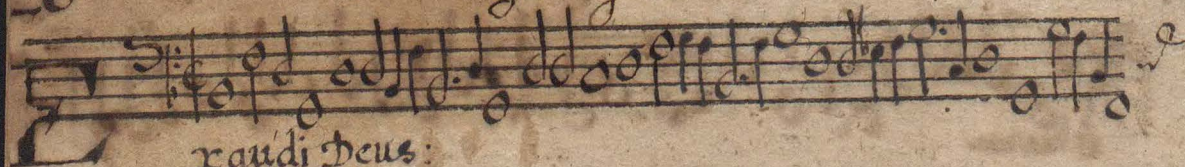 Exaudi Deus: